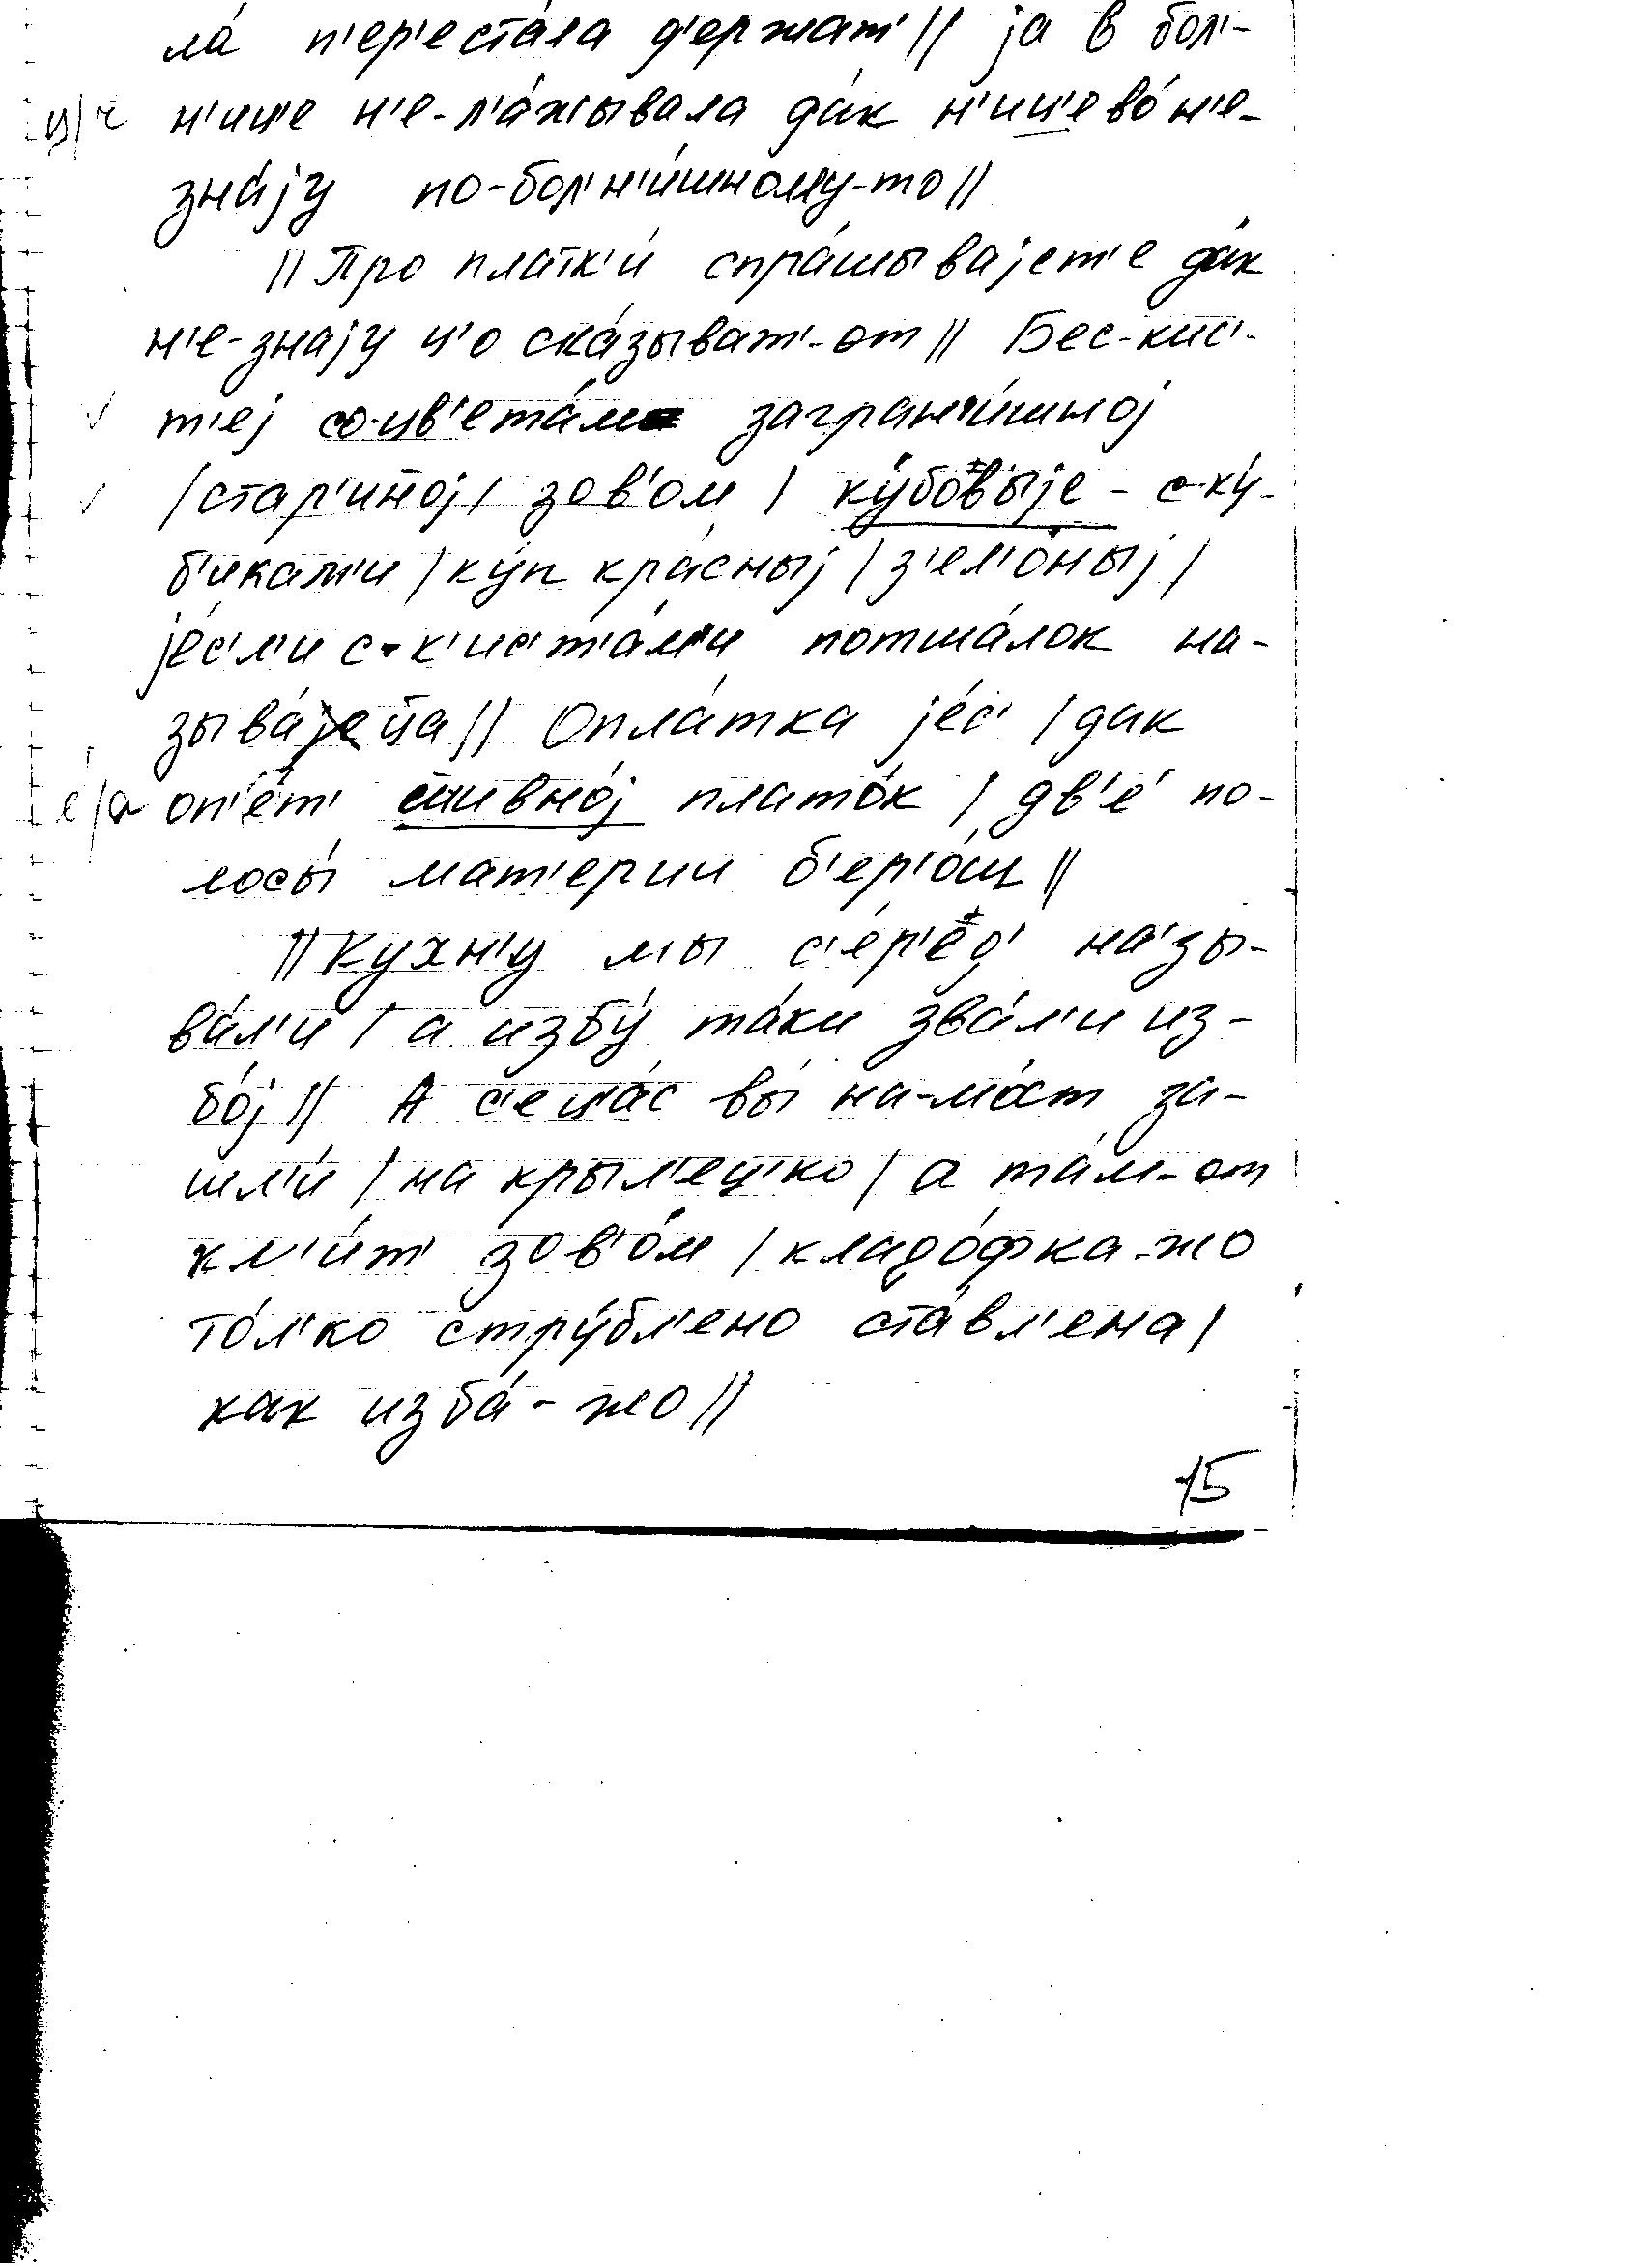 ла́ п'ер'еста́ла д'ержат' || jа в бол'-
ц/ч н'иц'е н'е-л'а́жывала да́к н'иц'ево́ н'е-
зна́jу по-бол'н'и́шному-то ||
|| Про платк'и́ спра́шываjет'е да́к
н'е-знаjу ц'о ска́зыват'-от || Бес-кис'-
т'еj со-цв'ета́м заграни́шноj
/ стар'иноj / зов'ом / ку́бо́выjе - с-ку́-
б'икам'и / ку́п кра́сныj / з'ел'о́ныj /
jе́с'л'и с-к'ис'т'а́м'и потша́лок на-
зыва́jеца || Опла́тка jе́с' / дак
е́/а оп'е́т' сшивно́j плато́к / дв'е́ по-
лосы́ мат'ерии б'ер'о́ш ||
|| Кухн'у мы с'е́р'ед' назы-
ва́л'и / а избу́ та́ки зва́л'и из-
бо́j || А с'ец'а́с вы́ на-мо́ст за-
шл'и́ / на крыл'ец'ко / а та́м-от
кл'и́т' зов'о́м / кладо́фка-жо
то́л'ко стру́бл'ено ста́вл'ена /
как изба́-жо ||
15